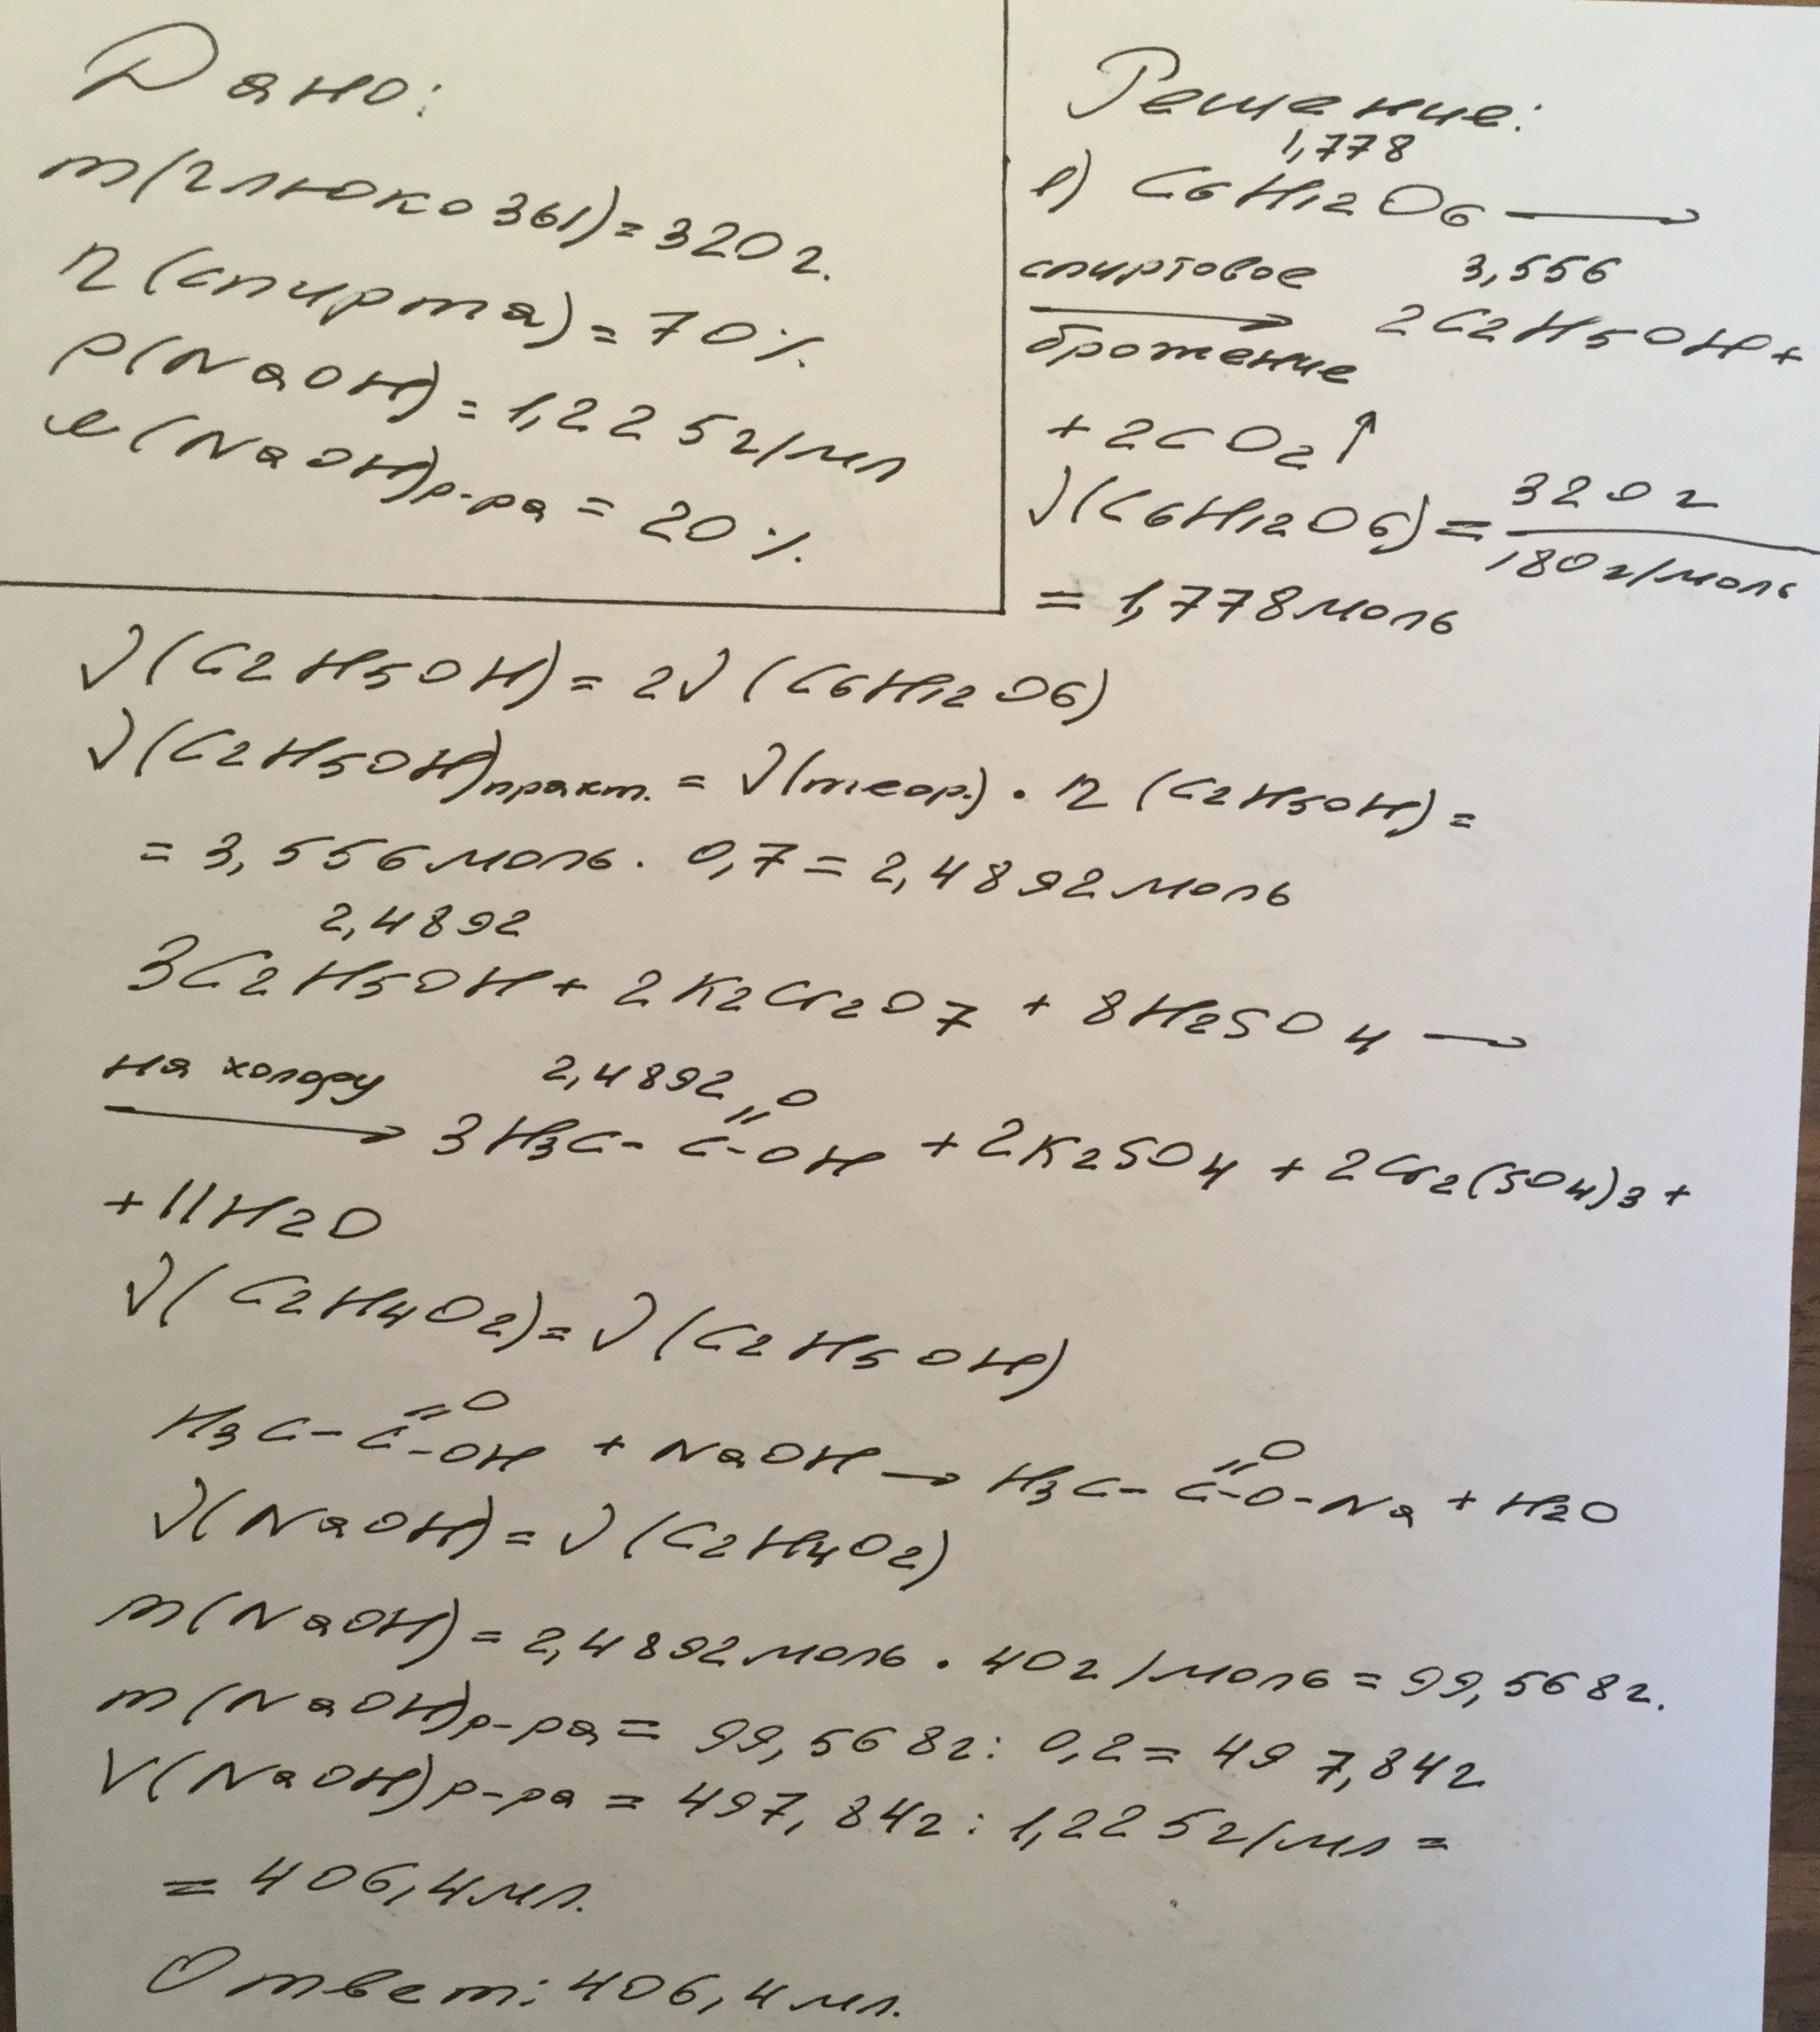 Дано:
m(глюкозы)=320г.
η(спирта)=70%.
ρ(NaOH)=1,225г/мл
ω(NaOH)р-ра=20%.
Решение:
1,778
1) C6H12O6 →
спиртовое 3,556
→ 2C2H5OH+
брожение
+2CO2↑
ν(C6H12O6)= 320г
180г/моль
= 1,778моль
ν(C2H5OH)=2ν(C6H12O6)
ν(C2H5OH)практ.=ν(теор.)·η(C2H5OH)=
=3,556моль·0,7=2,4892моль
2,4892
3C2H5OH+2K2Cr2O7+8H2SO4→
на холоду 2,4892 O
→ 3H3C-C-OH+2K2SO4+2Cr2(SO4)3+
+11H2O
ν(C2H4O2)=ν(C2H5OH)
H3C-C=O-OH+NaOH→H3C-C=O-O-Na+H2O
ν(NaOH)=ν(C2H4O2)
m(NaOH)=2,4892моль·40г/моль=99,568г.
m(NaOH)р-ра=99,568г:0,2=497,84г
V(NaOH)р-ра=497,84г:1,225г/мл=
=406,4мл.
Ответ:406,4мл.